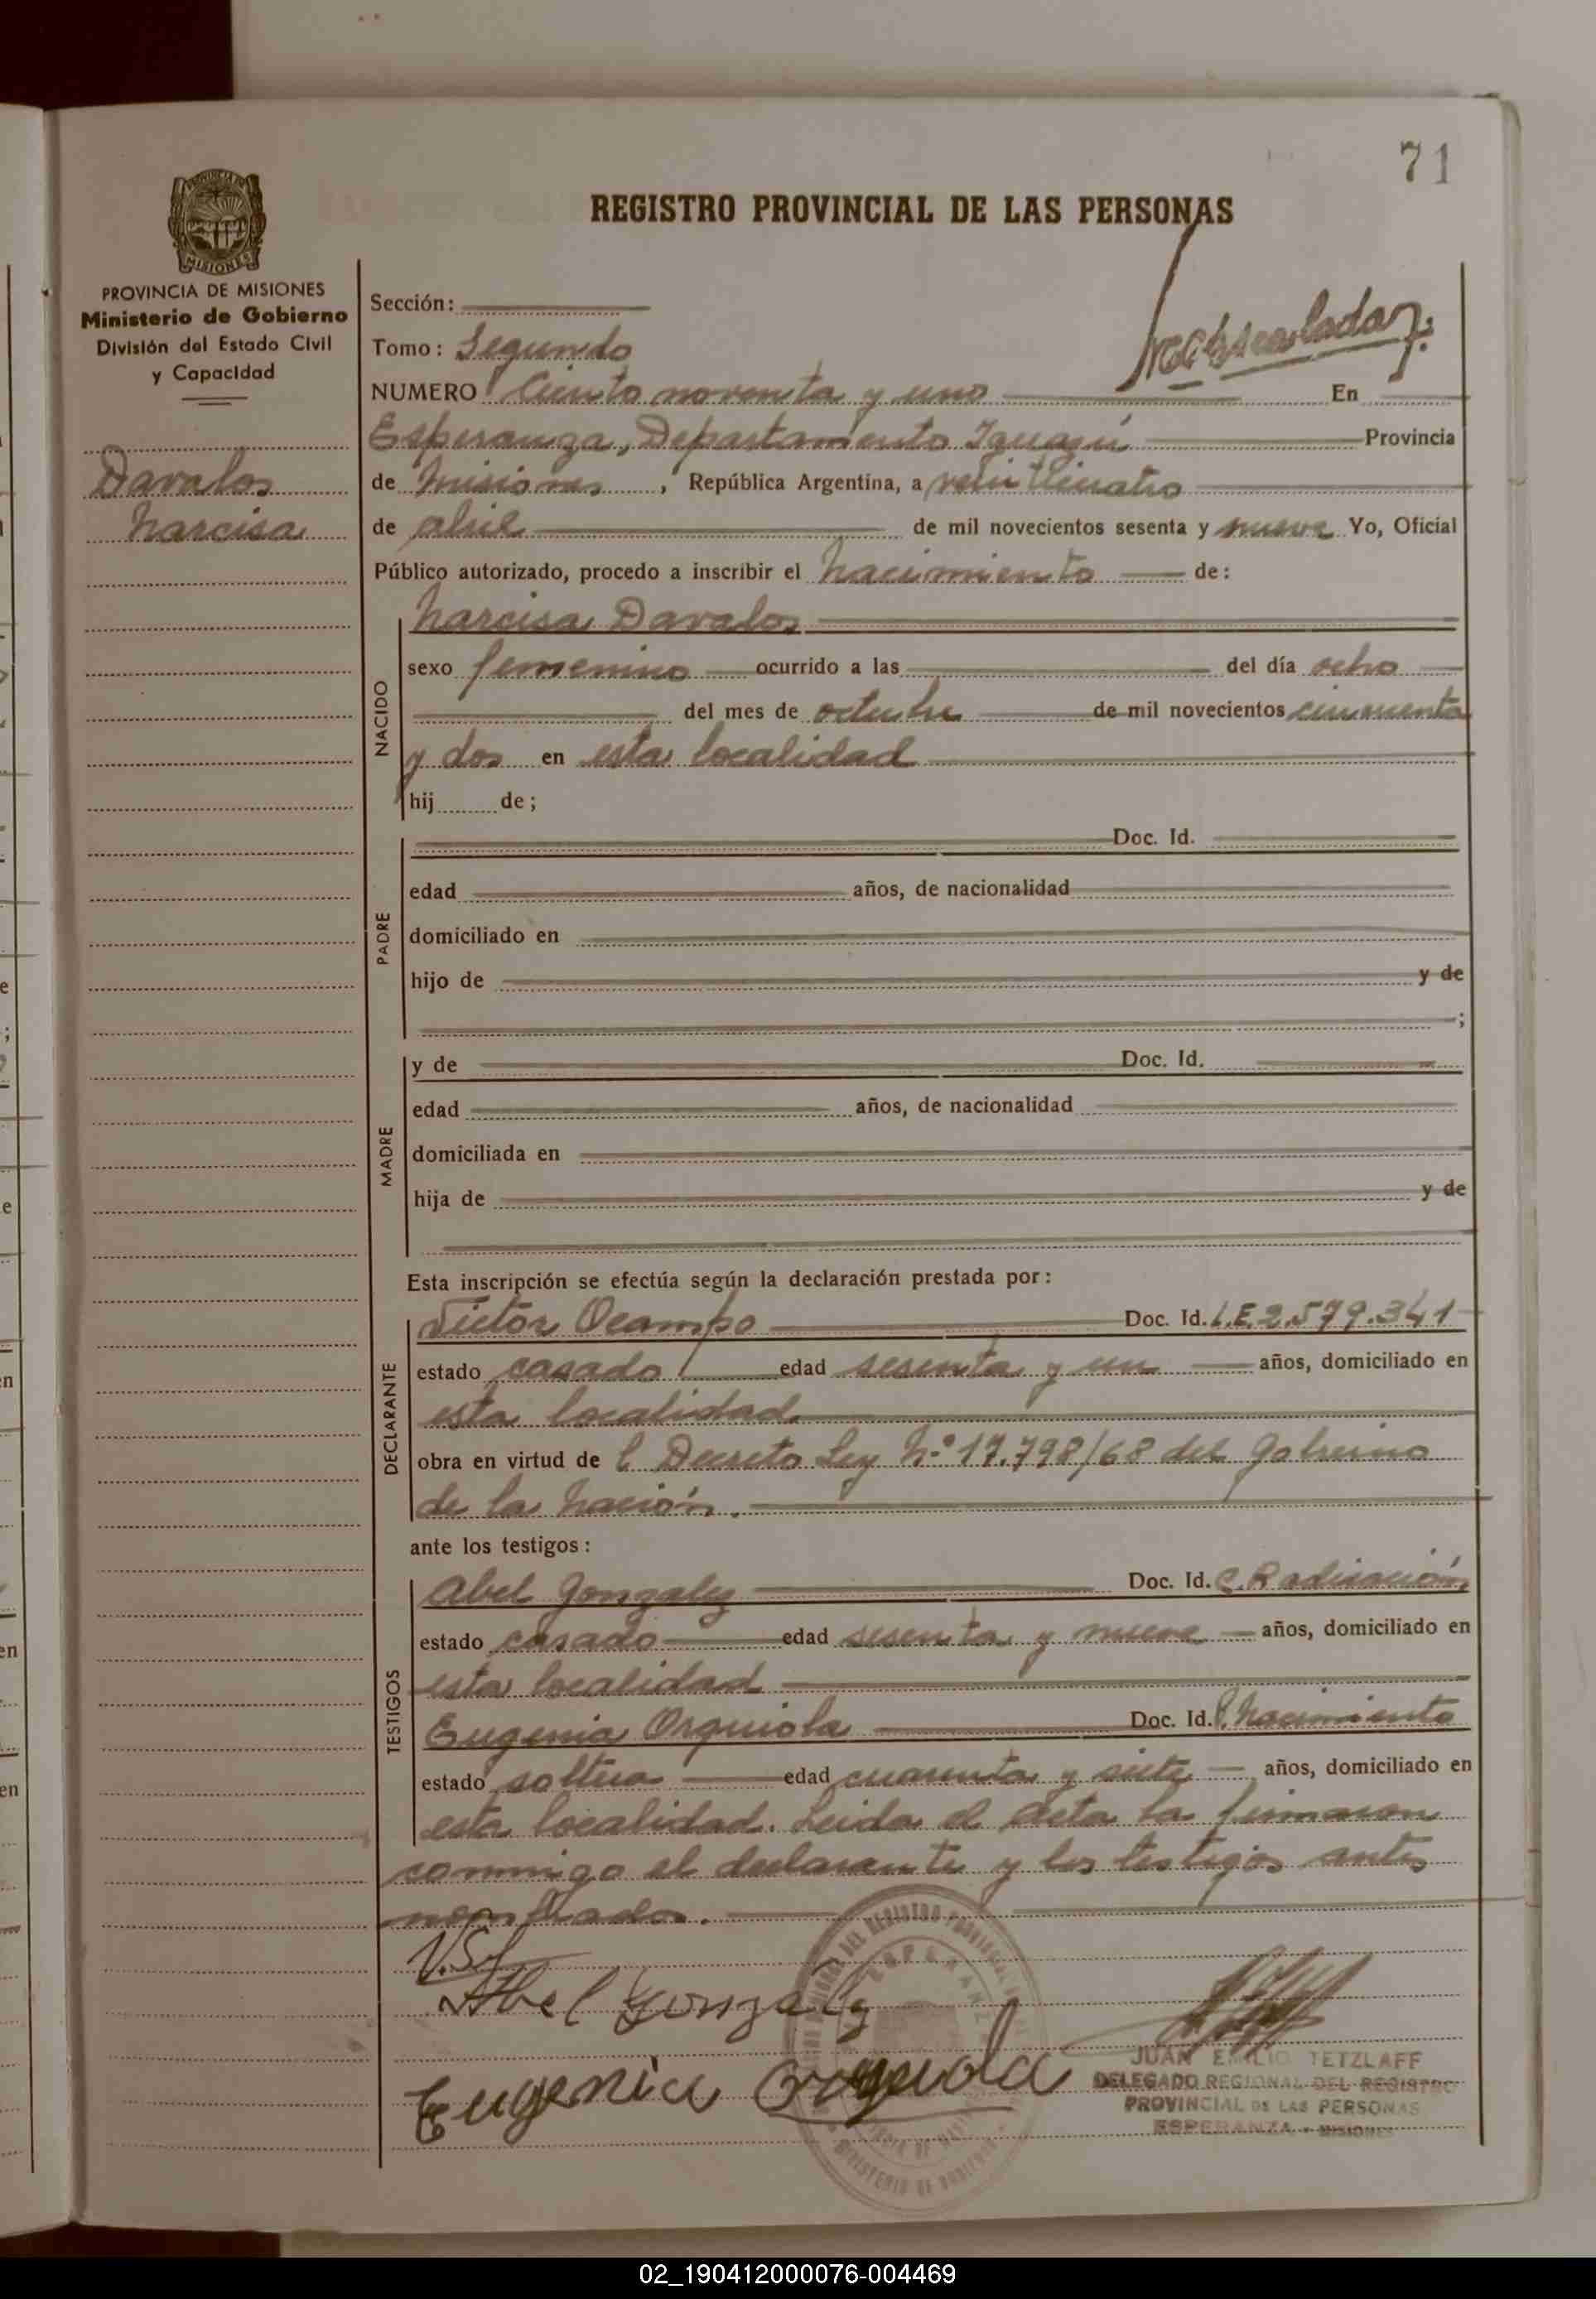 71
REGISTRO PROVINCIAL DE LAS PERSONAS
MISIONES
PROVINCIA DE MISIONES
Ministerio de Gobierno
División del Estado Civil
y Capacidad
Davalos
Narcisa
Sección:
Tomo: Segundo
NUMERO Ciento noventa y uno En
Esperanza, Departamento Iguazú Provincia
de Misiones, República Argentina, a veinticuatro
de abril de mil novecientos sesenta y nueve Yo, Oficial
Público autorizado, procedo a inscribir el nacimiento de:
NACIDO
Narcisa Davalos
sexo femenino ocurrido a las del día ocho
del mes de octubre de mil novecientos cincuenta
y dos en esta localidad
hij de;
PADRE
Doc. Id.
edad años, de nacionalidad
domiciliado en
hijo de y de
;
MADRE
y de Doc. Id.
edad años, de nacionalidad
domiciliada en
hija de y de
Esta inscripción se efectúa según la declaración prestada por:
DECLARANTE
Victor Ocampo Doc. Id. L.E.2.579.341
estado casado edad sesenta y un años, domiciliado en
esta localidad
obra en virtud de l Decreto Ley N.º 17.798/68 del Gobierno
de la Nación.
ante los testigos:
TESTIGOS
Abel Gonzalez Doc. Id. C. Radicación
estado casado edad sesenta y nueve años, domiciliado en
esta localidad
Eugenia Orquiola Doc. Id. P. Nacimiento
estado soltera edad cuarenta y siete años, domiciliado en
esta localidad. Leida el acta la firmaron
conmigo el declarante y los testigos antes
nombrados.
Abel Gonzalez
Eugenia Orquiola
JUAN EMILIO TETZLAFF
DELEGADO REGIONAL DEL REGISTRO
PROVINCIAL DE LAS PERSONAS
ESPERANZA - MISIONES
02_190412000076-004469